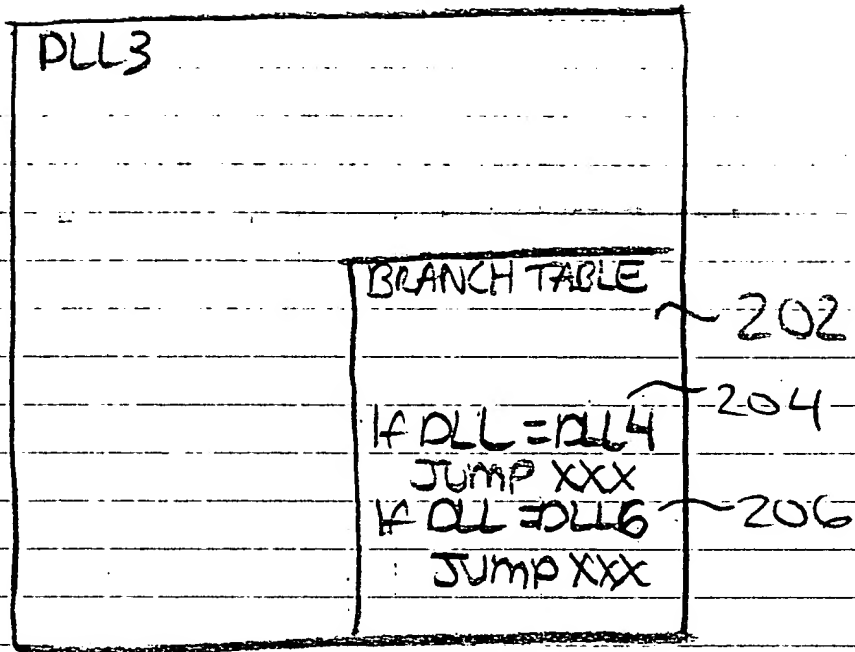 DLL3
BRANCH TABLE
202
204
If DLL = DLL4
JUMP XXX
If DLL = DLL6
206
JUMP XXX